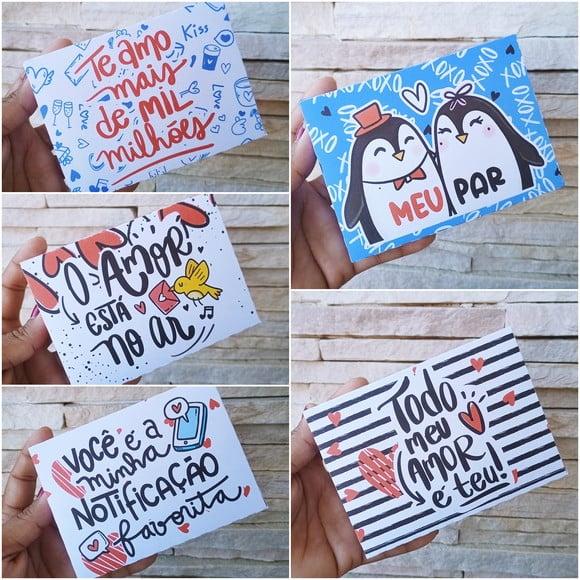 Kiss
Te amo
mais
de MIL
milhões
XOXO
MEU PAR
O AMOR
ESTÁ
NO AR
VOCÊ é a
minha
NOTIFICAÇÃO
favorita
Todo
meu
AMOR
é teu!